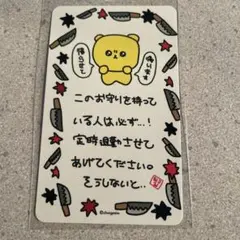 帰ります
帰らせて
このお守りを持って
いる人は必ず...!
定時退勤させて
あげてください。
そうしないと..